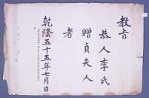 教旨
恭人李氏
贈貞夫人
者
乾隆五十五年七月日